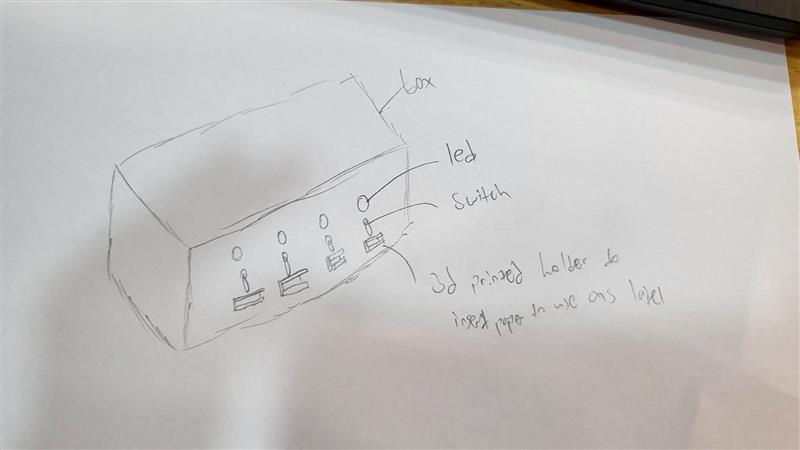 box
led
Switch
3d printed holder to
insert paper to use as label